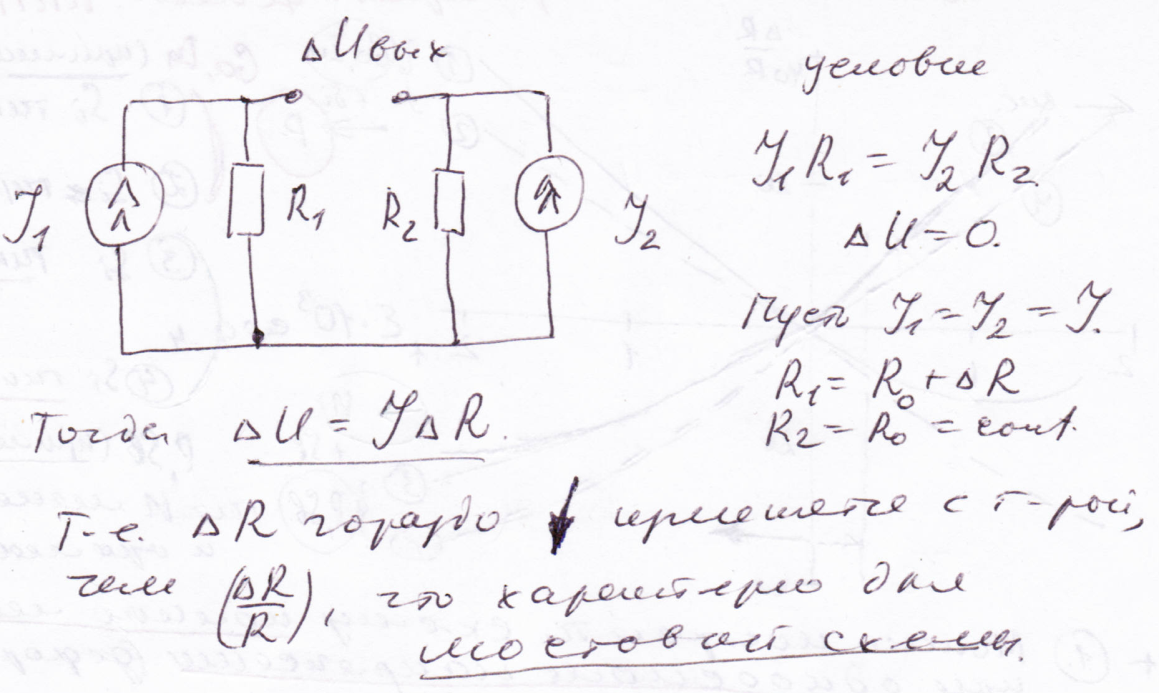 ΔUвых
J₁
R₁
R₂
J₂
условие
J₁R₁ = J₂R₂
ΔU = 0.
Пусть J₁ = J₂ = J.
R₁ = R₀ + ΔR
R₂ = R₀ = const.
Тогда ΔU = JΔR.
Т-е. ΔR гораздо ↓ изменяется с т-рой,
чем (ΔR/R), что характерно для
мостовой схемы.